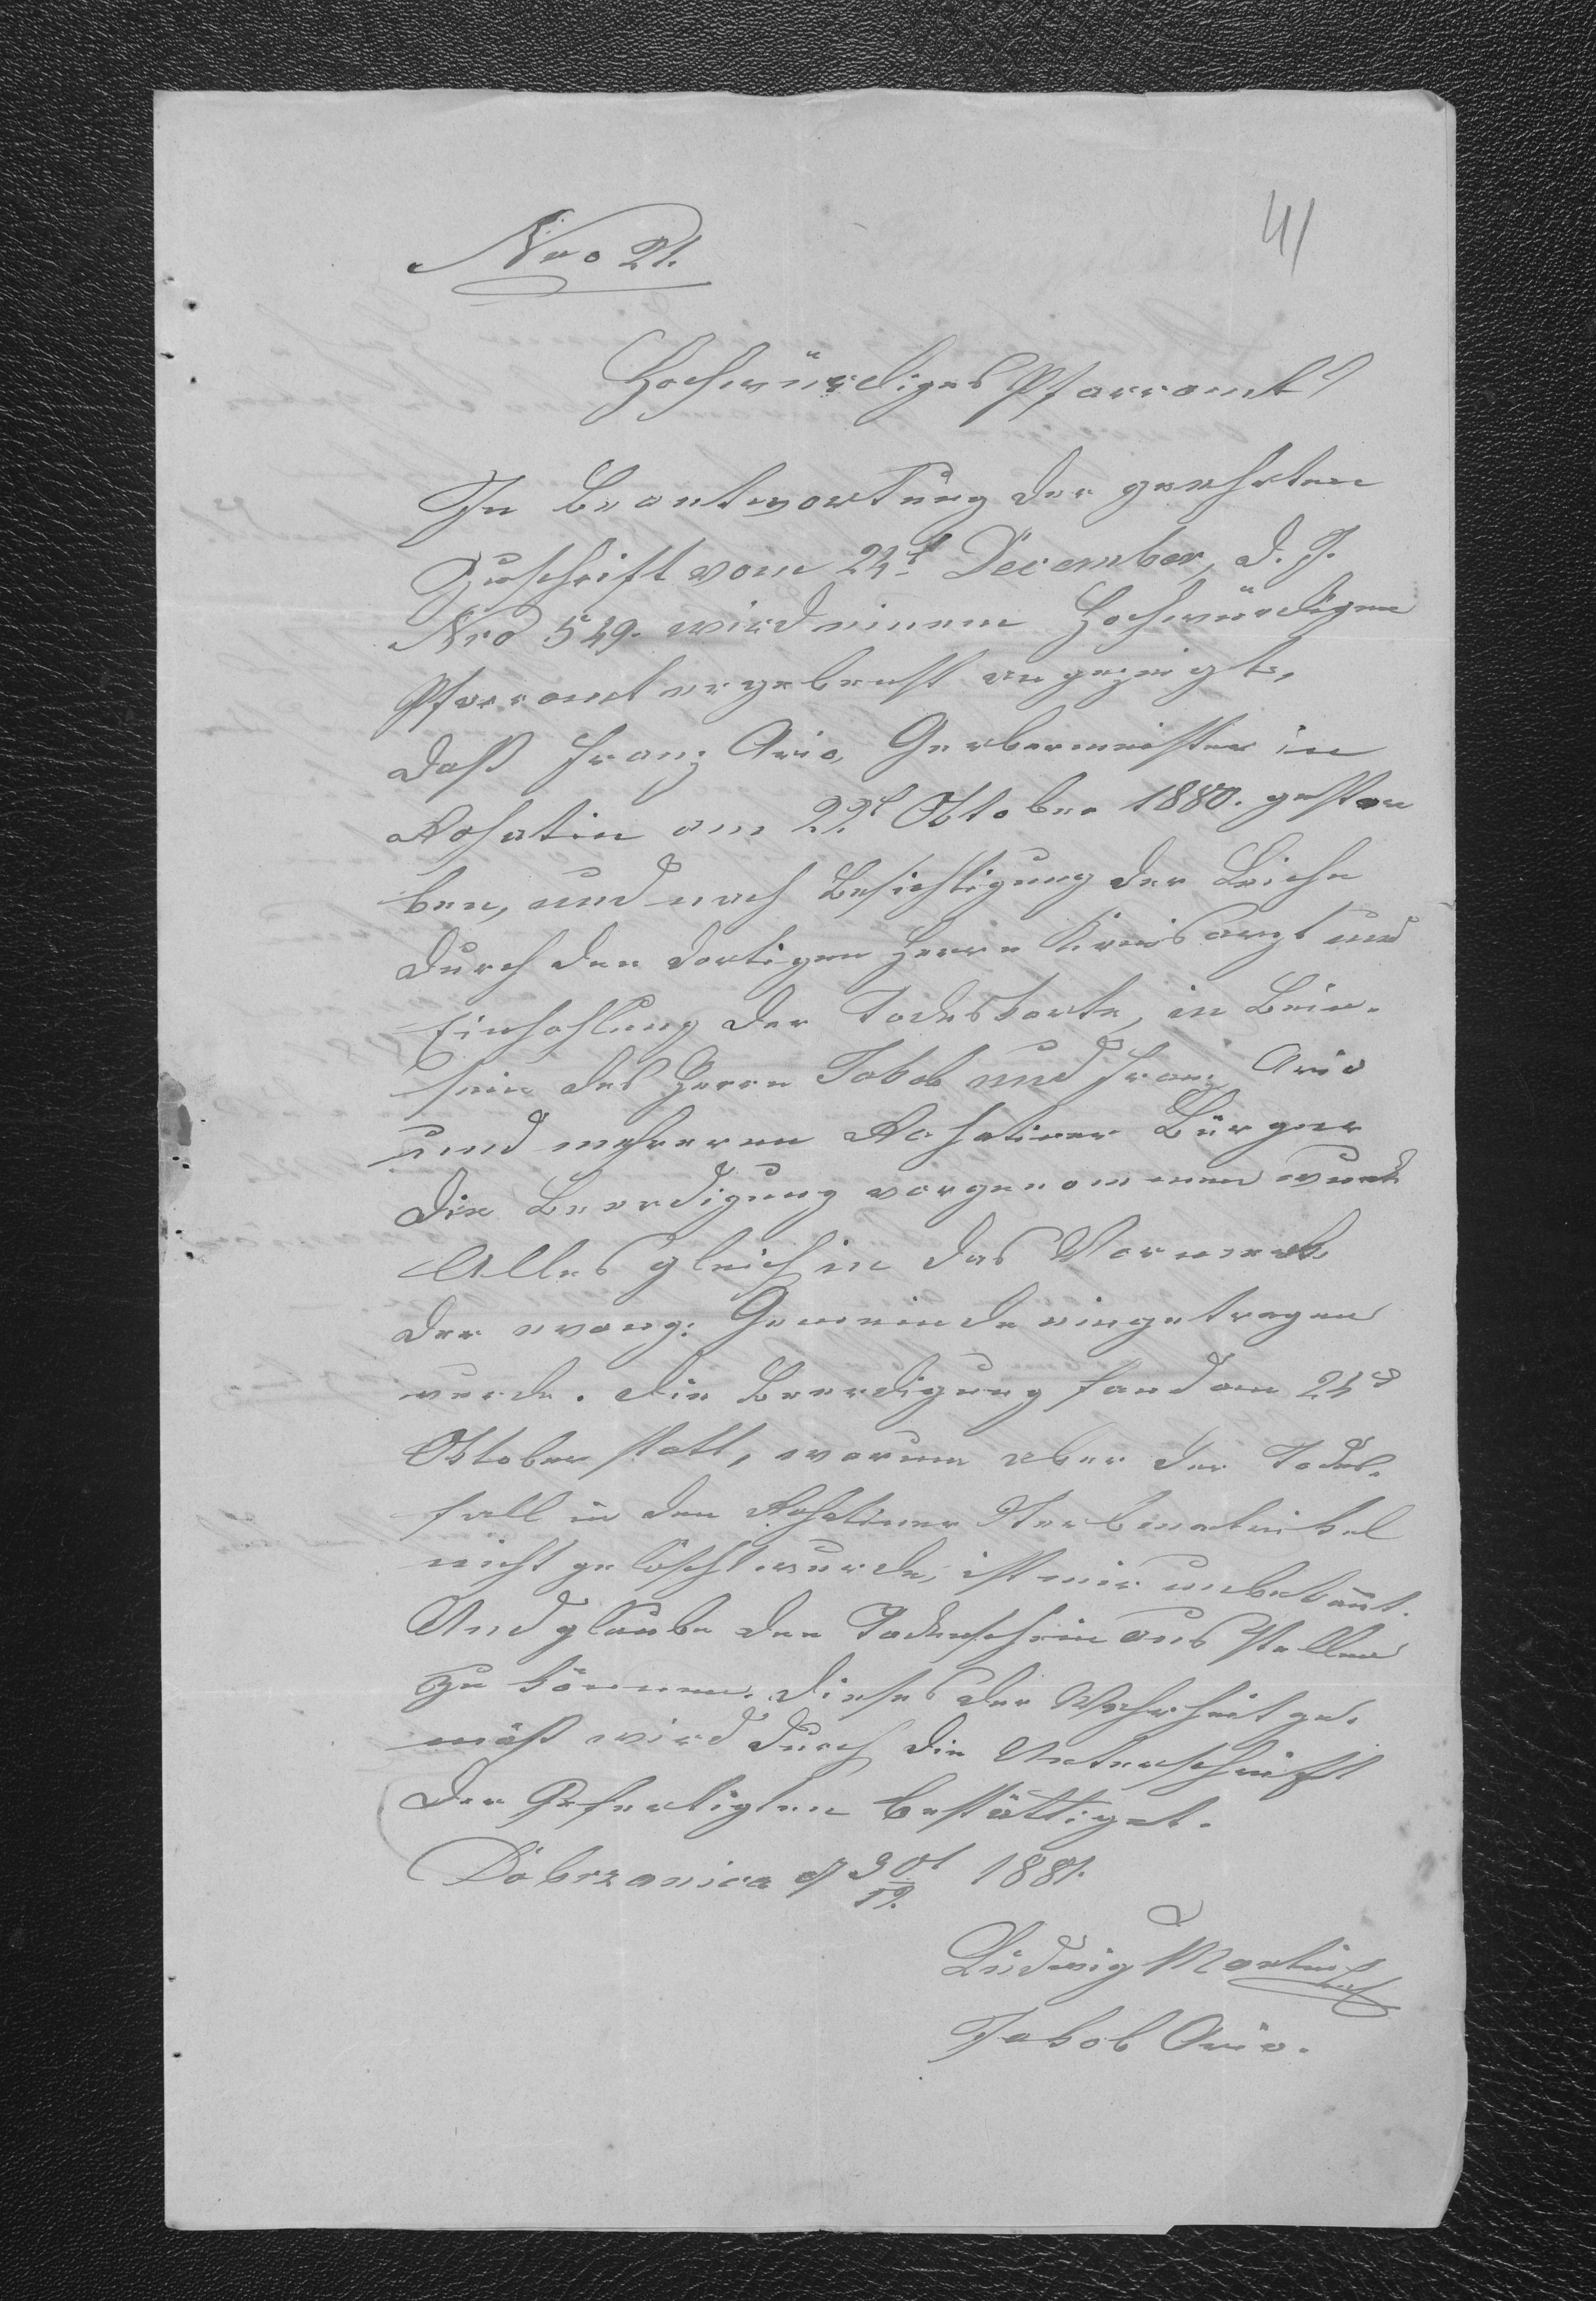 41
Nro 21.
Hochwürdiges Pfarramt!
In Beantwortung der geehrten
Zuschrift vom 24t December, d. J.
Nro 549. wird einem Hochwürdigen
Pfarramt ergebenst angezeigt,
daß Franz Ario, Gerbermeister in
Rohatin am 22t Oktober 1880. gestor
ben, und nach Besichtigung der Leiche
durch den dortigen Herrn Kreisarzt und
Einhohlung der Todeskarte, in Bein-
sein des Herrn Jakob und Franz Ario
und mehreren Rohatiner Bürger
die Beerdigung vorgenommen wurde
Alles gleich in das Vormerk
der evang: Gemeinde eingetragen
wurde. Die Beerdigung fand am 24t
Oktober statt, warum aber der Todes-
fall in den Rohatiner Sterbmatrikel
nicht gelöscht wurde, ist mir unbekannt.
Und glaube den Todenschein ausstellen
zu können. Dieses der Wahrheit ge-
mäß wird durch die Unterschrift
der Gefertigten bestättiget.
Dobrzanica 30t/12. 1881.
Ludwig Martin
Jakob Ario.